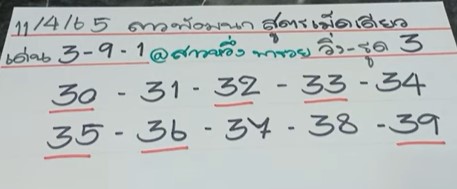 11/4/65 ลาวพัฒนา สูตรเม็ดเดียว
เด่น 3-9-1 @สาวหวึ่ง พารวย วิ่ง-รูด 3
30 - 31 - 32 - 33 - 34
35 - 36 - 37 - 38 - 39